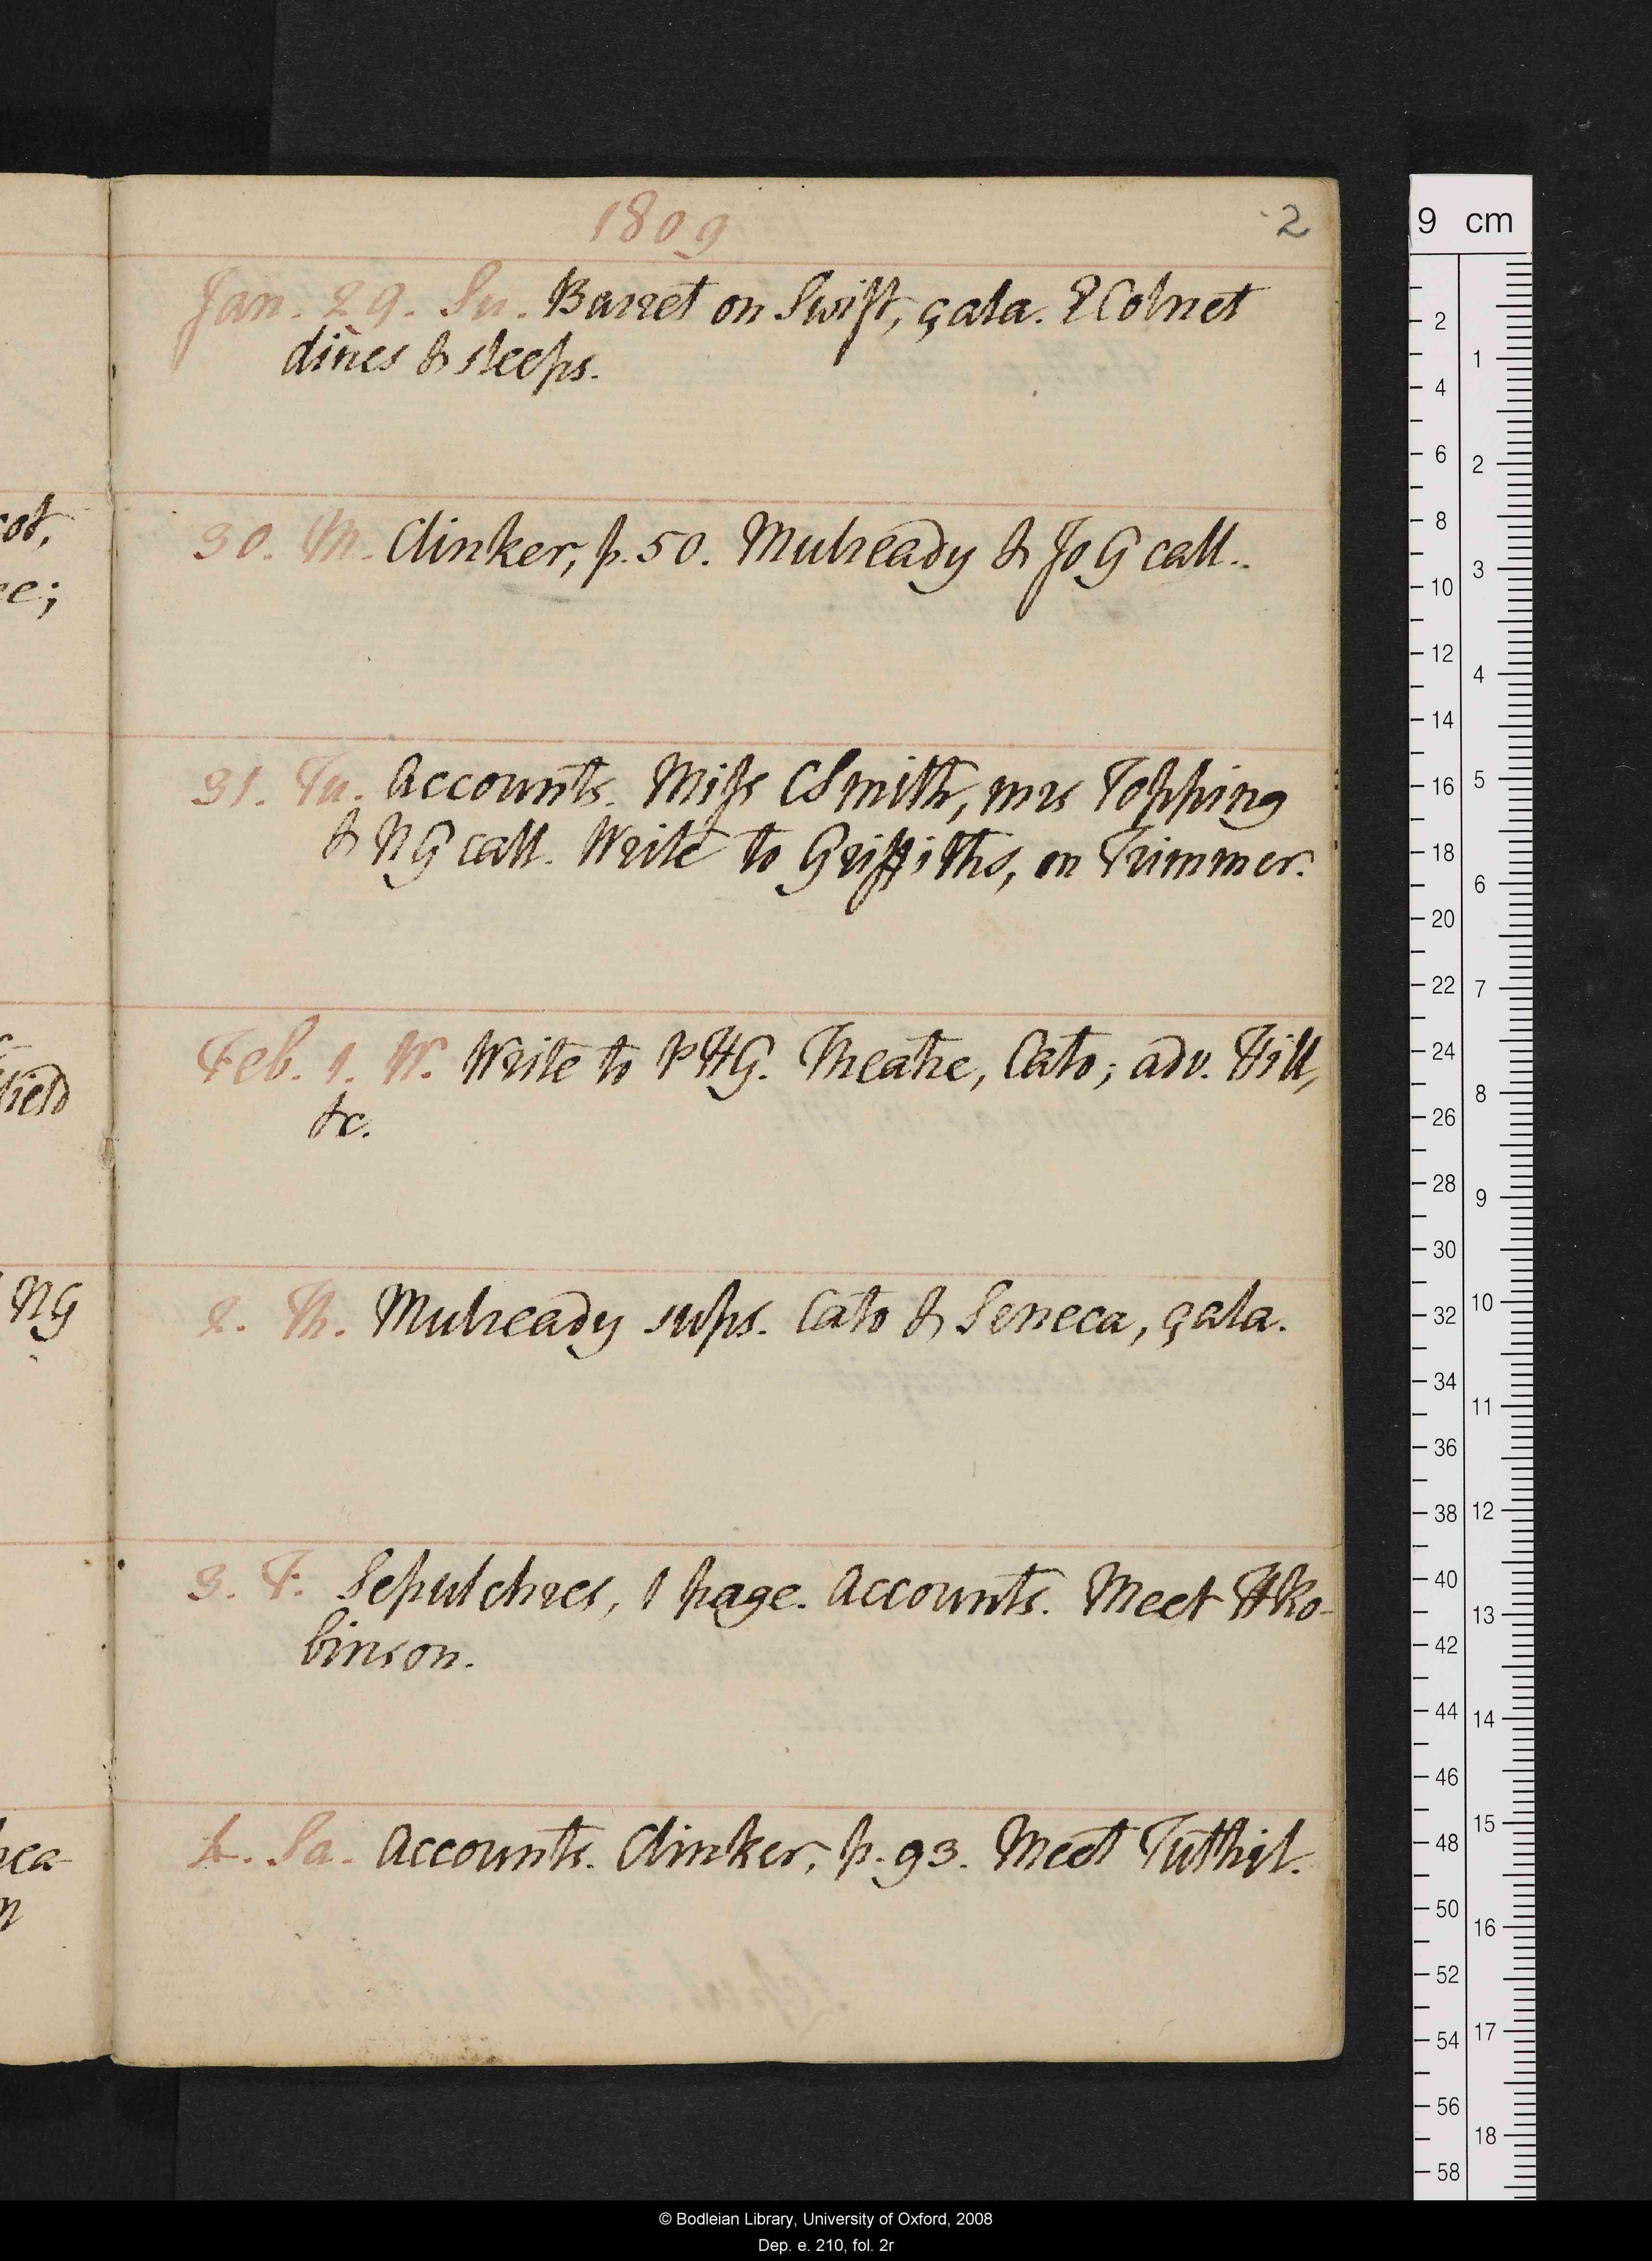 1809
2
Jan. 29. Su. Barret on Swift, çala. E Colnet
dines & sleeps.
30. M. Clinker, p. 50. Mulready & Jo G call.
31. Tu. Accounts. Miss C Smith, mrs Topping
& N G call. Write to Griffiths, on Trimmer.
Feb. 1. W. Write to P H G. Theatre, Cato; adv. Hill,
&c.
2. Th. Mulready sups. Cato & Seneca, çala.
3. F. Sepulchres, 1 page. Accounts. Meet H Ro-
binson.
4. Sa. Accounts. Clinker, p. 93. Meet Tuthil.
ot,
e;
field
NG
9 cm
2
4
6
8
10
12
14
16
18
20
22
24
26
28
30
32
34
36
38
40
42
44
46
48
50
52
54
56
58
1
2
3
4
5
6
7
8
9
10
11
12
13
14
15
16
17
18
© Bodleian Library, University of Oxford, 2008
Dep. e. 210, fol. 2r